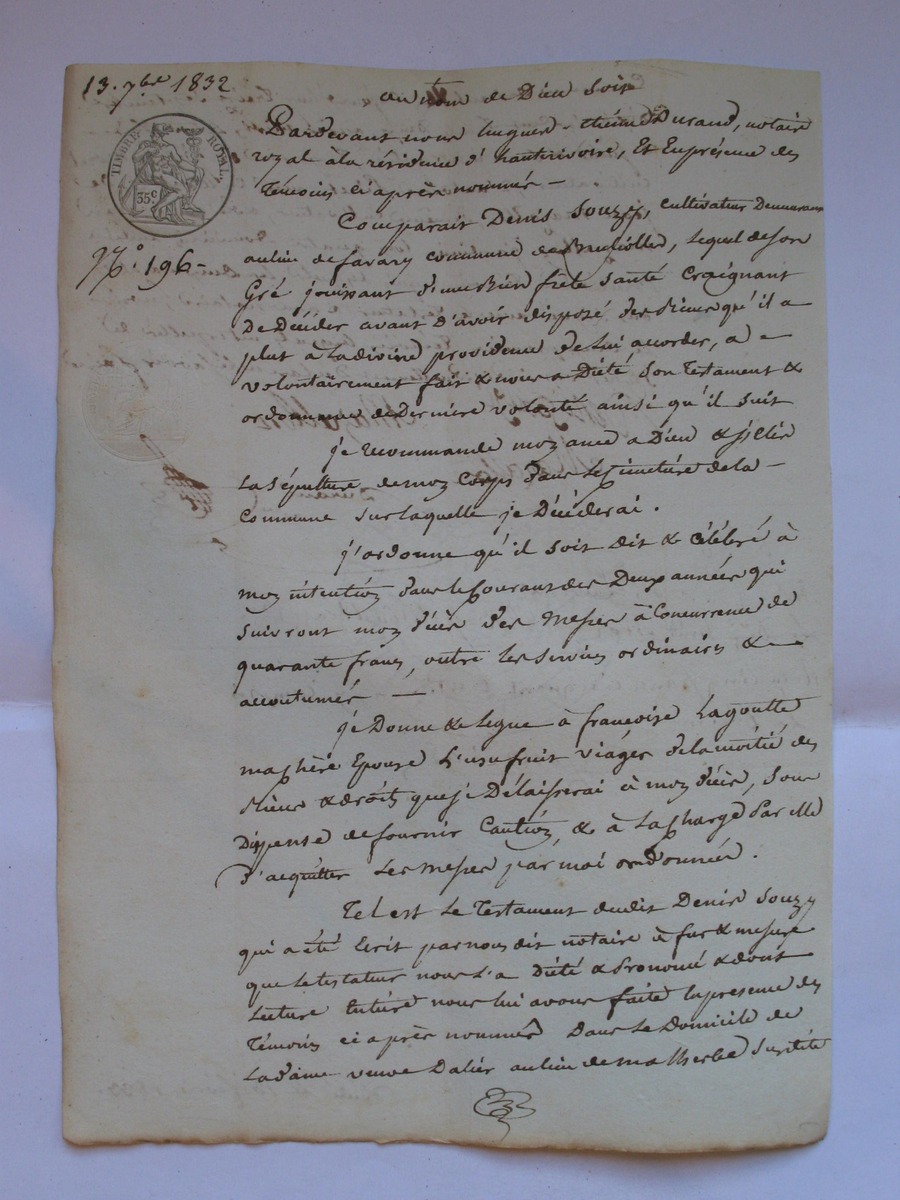 13. 7bre 1832
au nom de Dieu soit
TIMBRE ROYAL
35 c.
Pardevant nous hugues Durand, notaire
royal à la résidence d'hauterivoire, et En présence des
témoins ci après nommés —
Comparait Denis Souzy, cultivateur Demeurant
N.° 196 –
au lieu de favary commune de Brullolles, lequel de son
Gré jouissant d'une bien frele santé craignant
De Décéder avant D'avoir disposé des biens qu'il a
plut à la divine providence de lui accorder, a –
volontairement fait & nous a Dicté son testament &
ordonnance de Derniere volonté ainsi qu'il suit
je recommande mon ame a Dieu &
la Sépulture de mon Corps dans le cimetiére de la –
Commune sur laquelle je Décéderai.
j'ordonne qu'il soit dit & célébré à
mon intention dans le Courant des Deux années qui
suivront mon décès des Messes à Concurrence de
quarante francs, outre les services ordinaires & –
accoutumés —
je Donne & legue à francoise Lagoutte
ma chère Epouse L'usufruit viager de la moitié des
biens & droits que je Délaisserai à mon décès, sous
Dispense de fournir Caution, & à la charge Par elle
d'acquitter Les Messes par moi ordonnées.
Tel est le Testament dudit Denis Souzy
qui a été Ecrit par nous dit notaire à fur & mesure
que le testateur nous l'a dicté & Prononcé & dont
Lecture Entiére nous lui avons faite En présence des
témoins ci après nommés Dans le Domicile de
la dame veuve Dalier au lieu de malherbe susdite